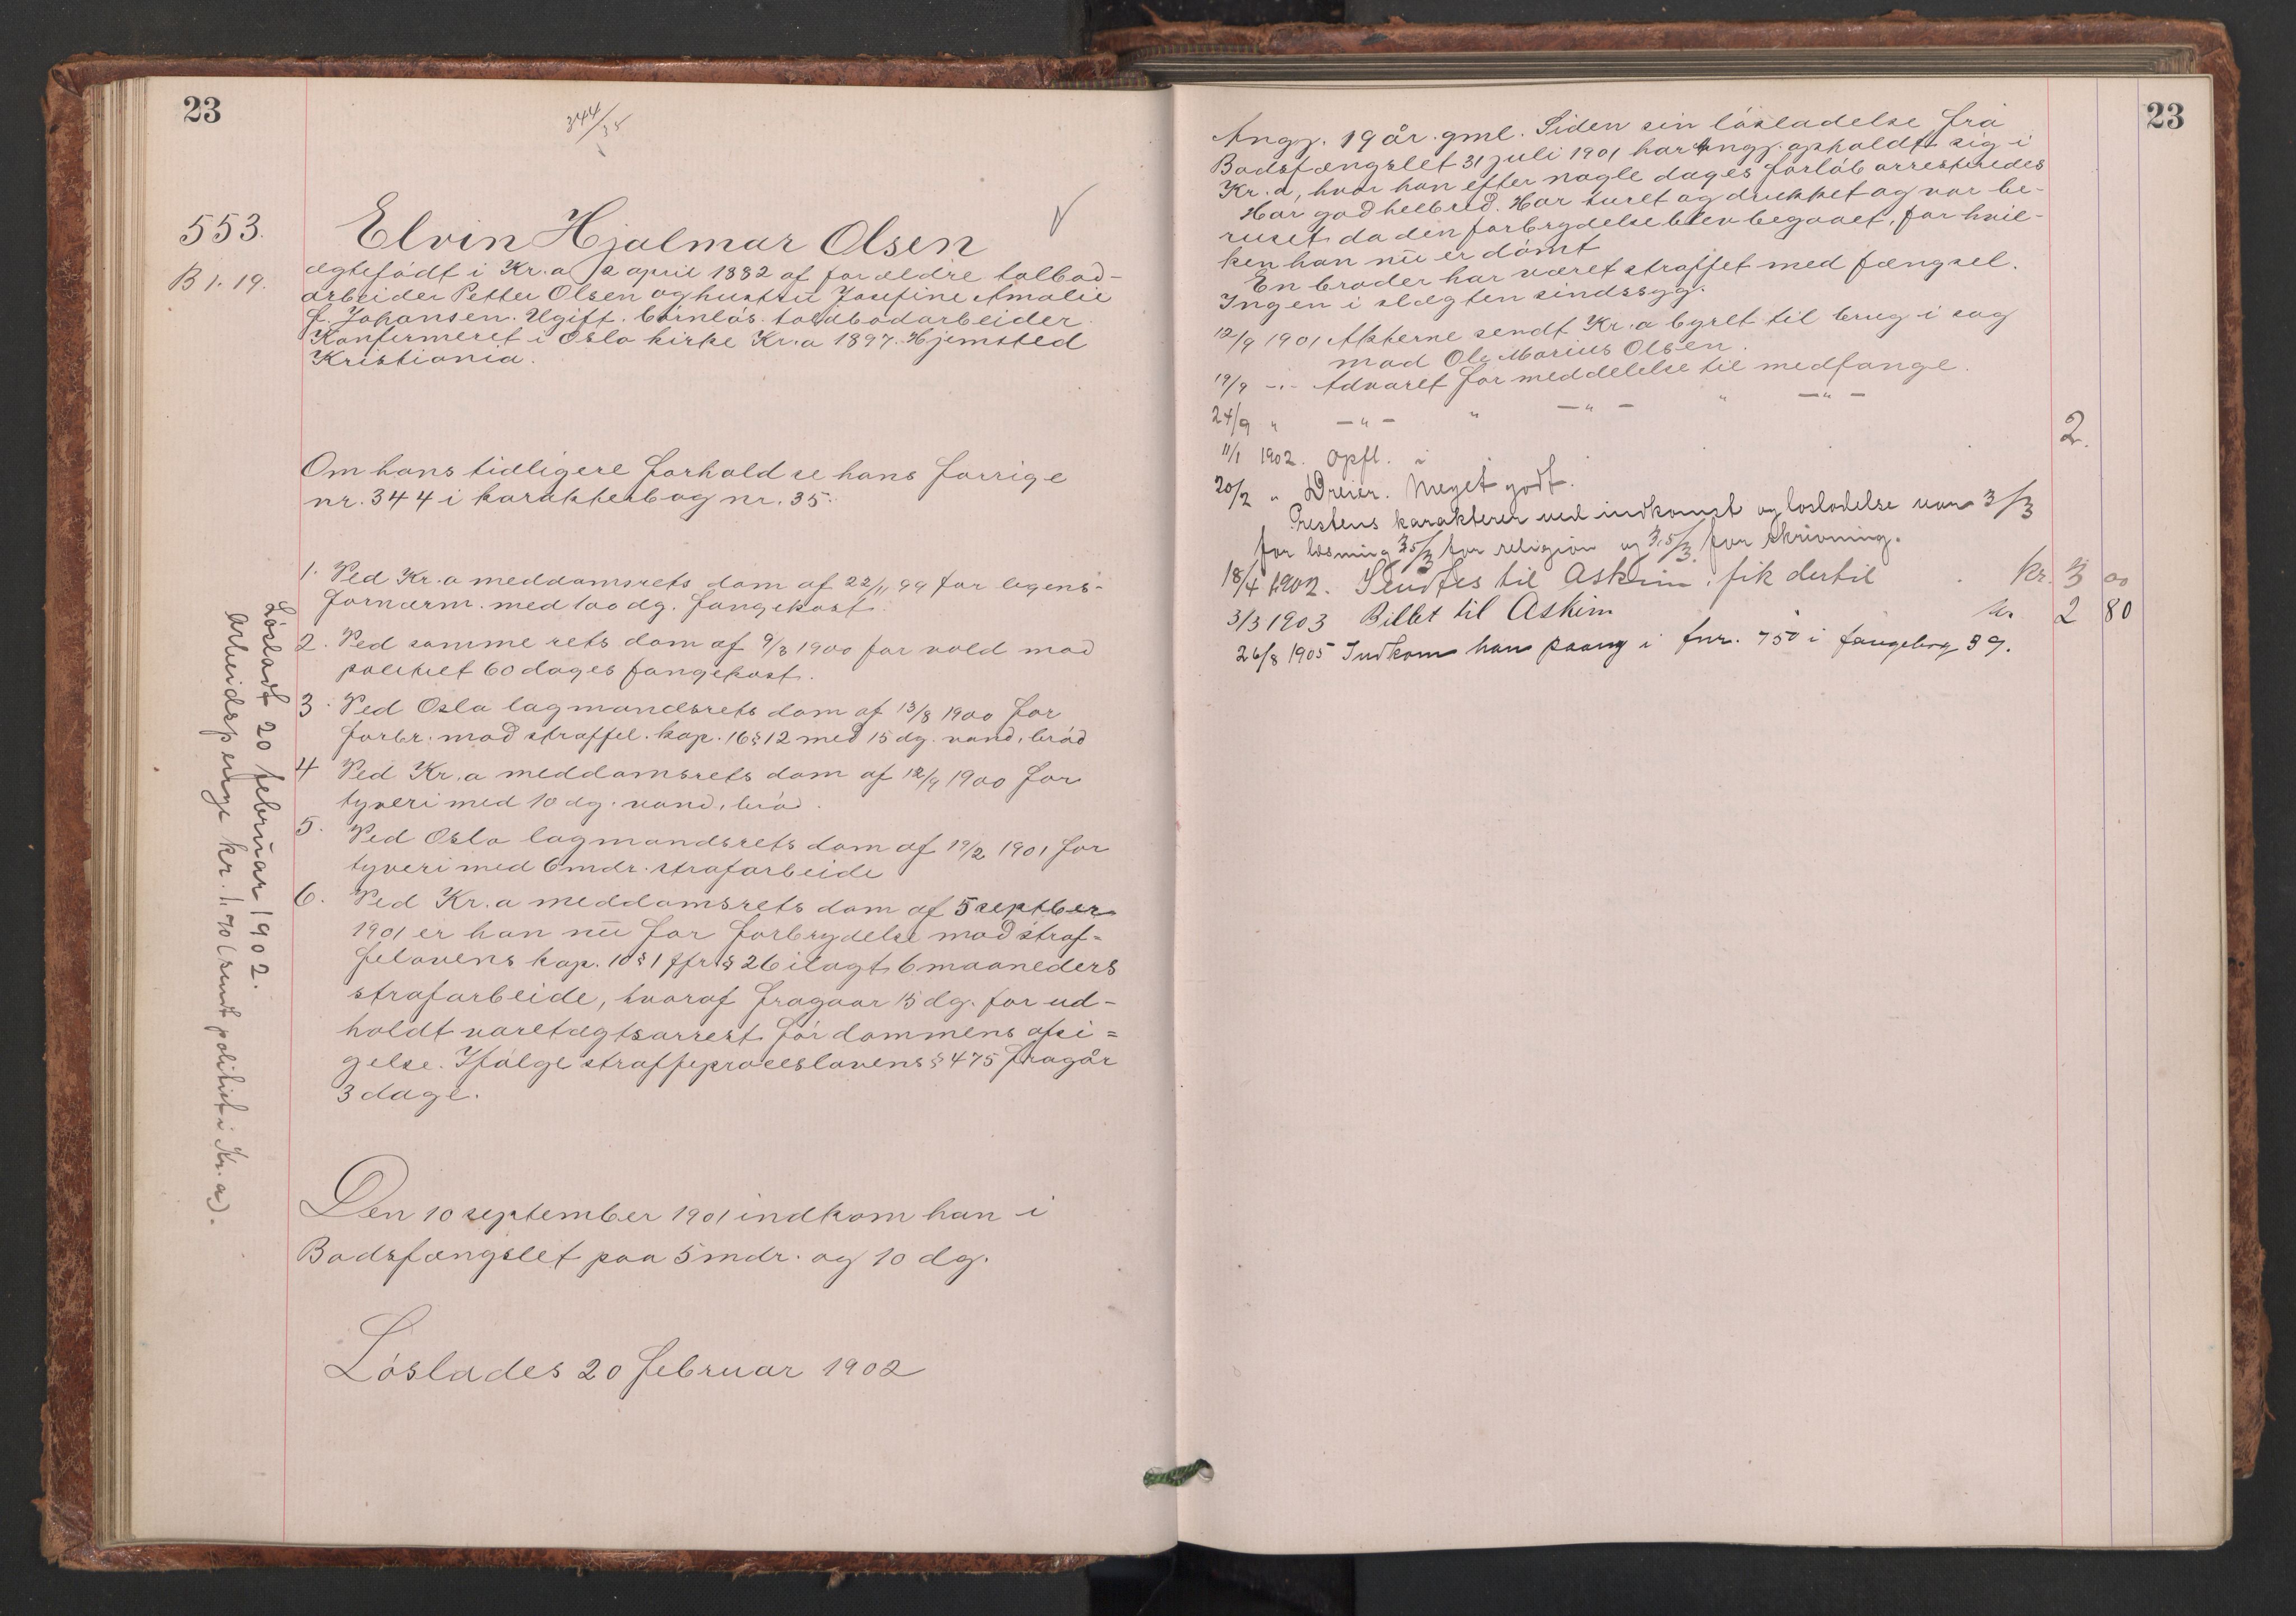 23
344/35
553.
B 1. 19.
Elvin Hjalmar Olsen
ægtefødt i Kr.a 2 april 1882 af forældre tolbod-
arbeider Petter Olsen og hustru Josefine Amalie
f. Johansen. Ugift. barnløs. toldbodarbeider
Konfirmeret i Oslo kirke Kr.a 1897. Hjemsted
Kristiania.
Om hans tidligere forhold se hans forrige
nr. 344 i karakterbog nr. 35.
1. Ved Kr.a meddomsrets dom af 22/11 99 for legems-
fornærm. med 100 dg. fangekost.
2. Ved samme rets dom af 9/3 1900 for vold mod
politiet 60 dages fangekost.
3. Ved Oslo lagmandsrets dom af 13/8 1900 for
forbr. mod straffel. kap. 16 § 12 med 15 dg. vand, brød
4 Ved Kr.a meddomsrets dom af 12/9 1900 for
tyveri med 10 dg. vand, brød.
5. Ved Oslo lagmandsrets dom af 19/2 1901 for
tyveri med 6 mdr. strafarbeide
6. Ved Kr.a meddomsrets dom af 5 septber
1901 er han nu for forbrydelse mod straf=
felovens kap. 10 § 1 jfr § 26 ilagt 6 maaneders
strafarbeide, hvoraf fragaar 15 dg. for ud-
holdt varetægtsarrest før dommens afsi=
gelse. Ifølge straffeproceslovens § 475 fragår
3 dage.
Den 10 september 1901 indkom han i
Bodsfængslet paa 5 mdr. og 10 dg.
Løslades 20 februar 1902
Løsladt 20 februar 1902.
Arbeidspenge kr. 11,90 (sendt politiet i Kr.a).
23
Angj. 19 år gml. Siden sin løsladelse fra
Bodsfængslet 31 juli 1901 har angj. opholdt sig i
Kr.a, hvor han efter nogle dages forløb arresteredes
Har god helbred. Har turet og drukket og var be-
ruset da den forbrydelse blev begaaet, for hvil-
ken han nu er dømt
En broder har været straffet med fængsel.
Ingen i slægten sindssyg.
12/9 1901 Akterne sendt Kr.a byret til brug i sag
mod Ole Marius Olsen.
19/9 -"- Advaret for meddelelse til medfange.
24/9 " -"- " -"- " -"-
11/1 1902. Opfl. i 2.
20/2 " Dreier. Meget godt.
Prestens karakterer ved indkomst og løsladelse var 3/3
for læsning 3.5/3 for religion og 3.5/3 for skrivning.
18/4 1902. Sendtes til Askim, fik dertil kr. 3 00
3/3 1903 Billet til Askim kr. 2 80
26/8 1905 Indkom han paany i fnr. 750 i fangebog 39.